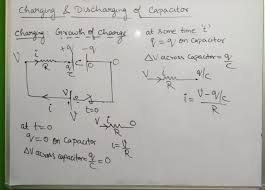 Charging & Discharging of Capacitor
Charging: Growth of Charge
at some time 't'
q = q on capacitor
ΔV across capacitor = q/C
+q -q
V i R q/C 0 0
V i R q/C
i = (V - q/C)/R
V 0
at t=0
q=0 on capacitor
ΔV across capacitor = q/C = 0
V i R 0
i = V/R